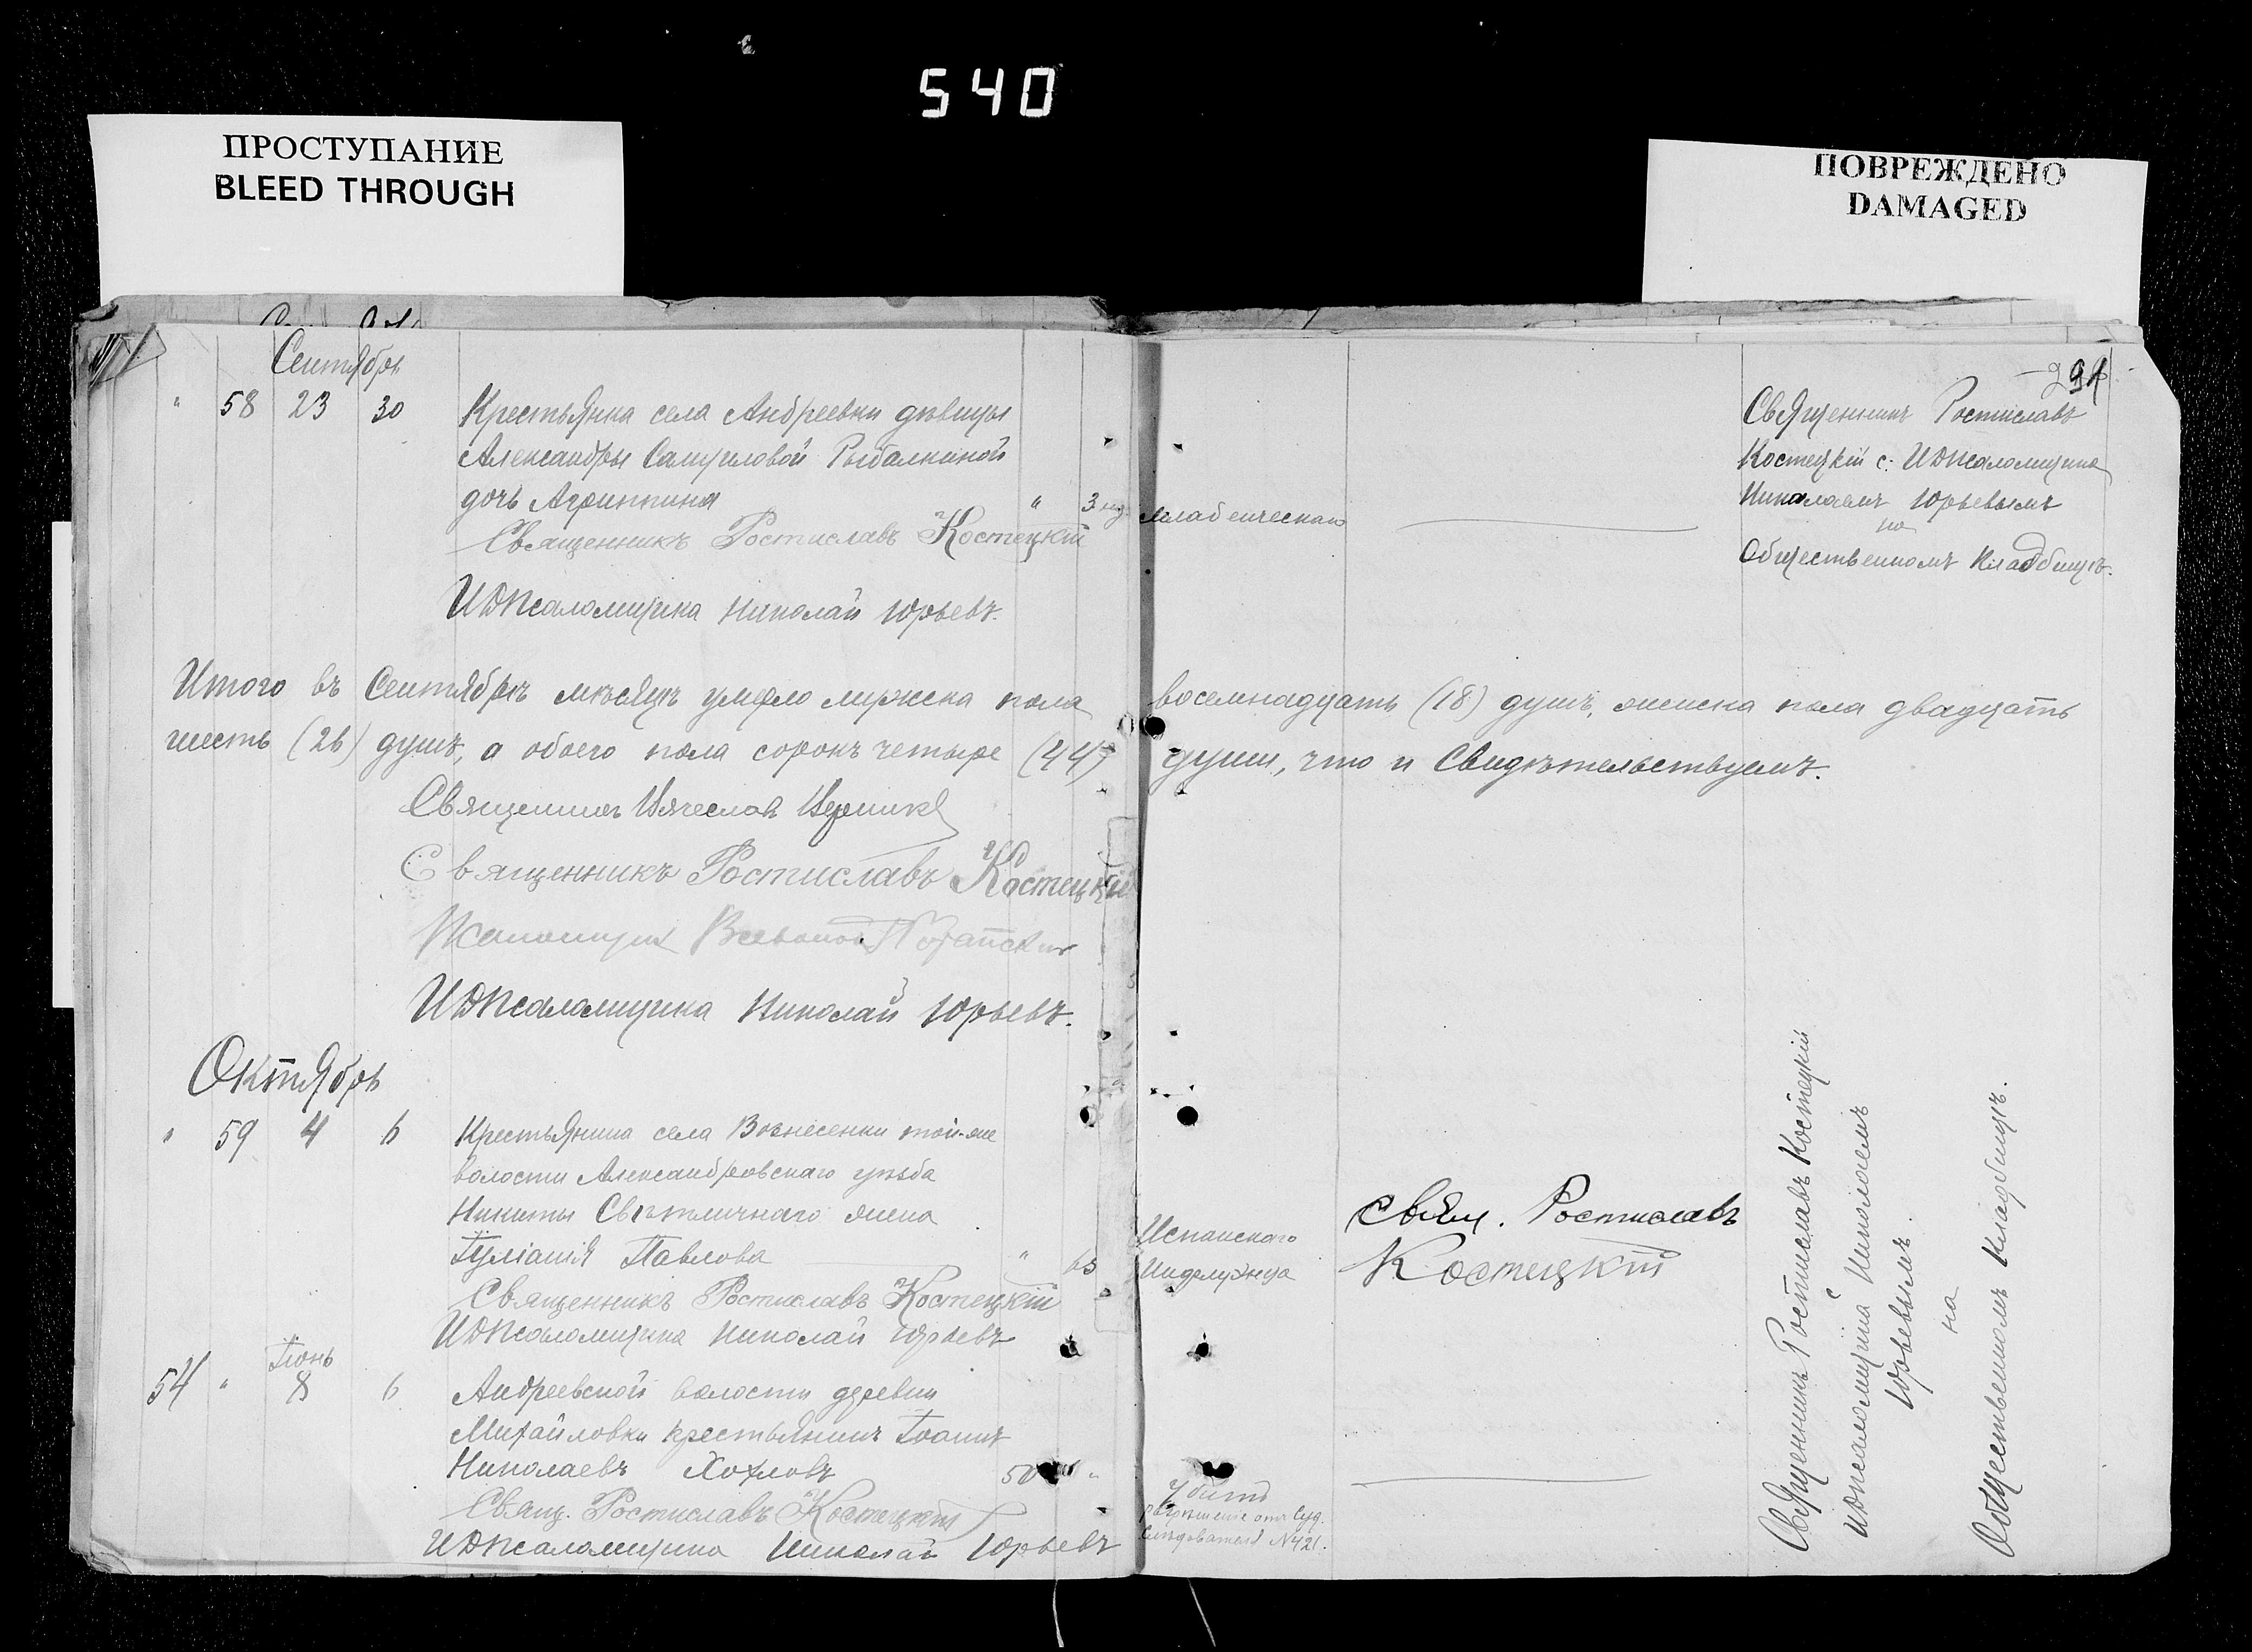 540
ПРОСТУПАНИЕ
BLEED THROUGH
ПОВРЕЖДЕНО
DAMAGED
Сентябрь
" 58 23 30 Крестьянка села Андреевки дѣвицы
Александры Самуиловой Рыбалкиной
дочь Агриппина " 3 нед.
Священникъ Ростиславъ Костецкій
ИДПсаломщика Николай Юрьевъ.
Итого въ Сентябрѣ мѣсяцѣ умерло мужеска пола
шесть (26) душъ, а обоего пола сорокъ четыре (44)
Священникъ Вячеславъ
Священникъ Ростиславъ Костецкій
Псаломщикъ
ИДПсаломщика Николай Юрьевъ.
Октябрь
" 59 4 6 Крестьянина села Вознесенки той-же
волости Александровскаго уѣзда
Никиты Свѣтличнаго жена
Іуліанія Павлова " 65
Священникъ Ростиславъ Костецкій
ИДПсаломщика Николай Юрьевъ
Іюнь
54 " 8 6 Андреевской волости деревни
Михайловки крестьянинъ Іоаннъ
Николаевъ Хохловъ 50 "
Свящ. Ростиславъ Костецкій
ИДПсаломщика Николай Юрьевъ
291
младенческаго
Священникъ Ростиславъ
Костецкій с. ИДПсаломщика
Николаемъ Юрьевымъ
на
Общественномъ Кладбищѣ.
восемнадцать (18) душъ, женска пола двадцать
души, что и Свидѣтельствуемъ.
Испанскаго
Инфлуэнца
Свящ. Ростиславъ
Костецкій
Убитъ
Разрѣшеніе отъ Суд.
Слѣдователя №421.
Священникъ Ростиславъ Костецкій
с
ИДПсаломщика Николаемъ
Юрьевымъ
на
Общественномъ Кладбищѣ.